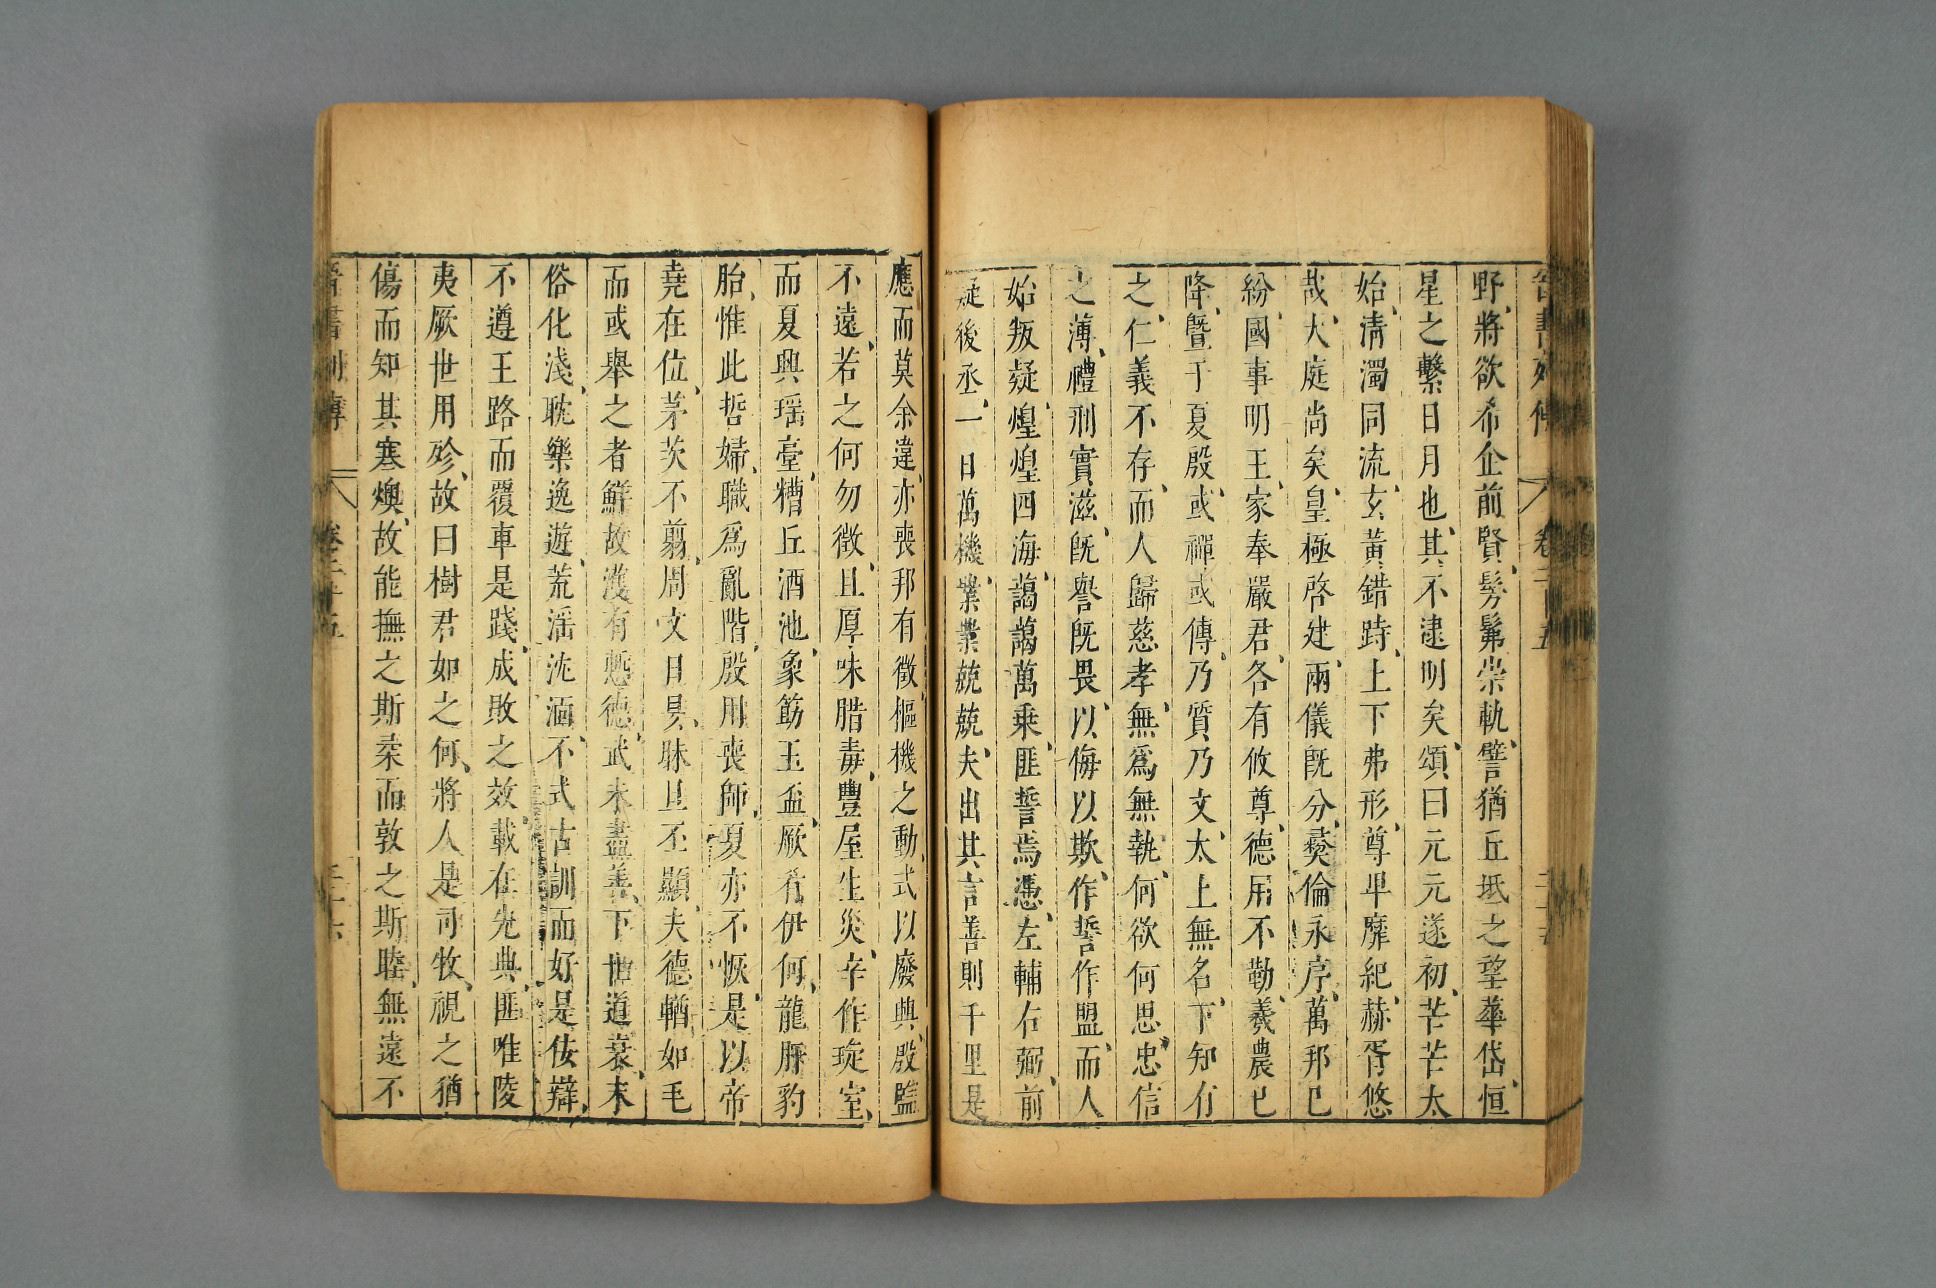 晉書列傳 卷二十五 二十五
野、將欲希企前賢、髣髴崇軌、譬猶丘坻之望華岱、恒
星之繫日月也、其不逮明矣、頌曰元元遂初、芒芒太
始、清濁同流、玄黃錯跱、上下弗形、尊卑靡紀、赫胥悠
哉、大庭尚矣、皇極啓建、兩儀旣分、彝倫永序、萬邦已
紛、國事明王、家奉嚴君、各有攸尊、德用不勤、羲農已
降、曁于夏殷、或禪或傳、乃質乃文、太上無名、下知有
之、仁義不存、而人歸慈孝、無爲無執、何欲何思、忠信
之薄、禮刑實滋、旣譽旣畏、以侮以欺、作誓作盟、而人
始叛疑、煌煌四海、藹藹萬乘、匪誓焉憑、左輔右弼、前
疑後丞、一日萬機、業業兢兢、夫出其言善、則千里是
應、而莫余違、亦喪邦有徵、樞機之動、式以廢興、殷監
不遠、若之何勿徵、且厚味腊毒、豐屋生災、辛作琁室、
而夏興瑶臺、糟丘酒池、象筯玉盃、厥肴伊何、龍肝豹
胎、惟此哲婦、職爲亂階、殷用喪師、夏亦不恢、是以帝
堯在位、茅茨不翦、周文日昃、昧旦丕顯、夫德輶如毛
而或舉之者鮮、故濩有慙德、武未盡善、下世道衰、末
俗化淺、耽樂逸遊、荒淫沈湎、不式古訓、而好是佞辯、
不遵王路、而覆車是踐、成敗之效、載在先典、匪唯陵
夷厥世用殄、故曰樹君如之何、將人是司牧、視之猶
傷、而知其寒燠、故能撫之斯柔、而敦之斯睦、無遠不
晉書列傳 卷二十五 二十六